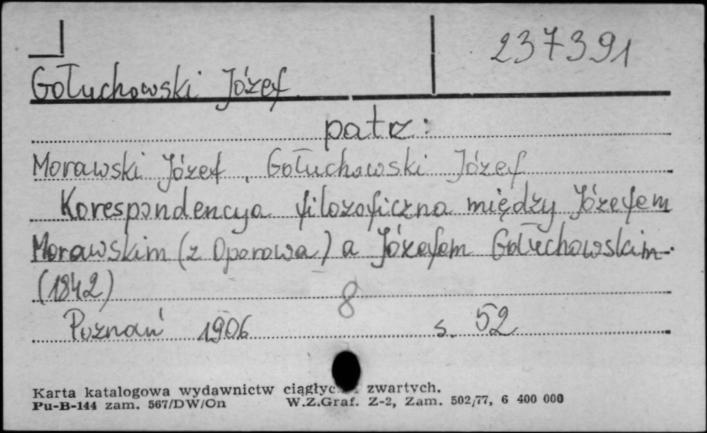 237391
Gołuchowski Józef
patrz:
Morawski Józef, Gołuchowski Józef
Korespondencya filozoficzna między Józefem
Morawskim (z Oporowa) a Józefem Gołuchowskim.
(1842)
8
Poznań 1906 s. 52
Karta katalogowa wydawnictw zwartych.
Pu-B-144 zam. 567/DW/On W.Z.Graf. Z-2, Zam. 502/77, 6 400 000